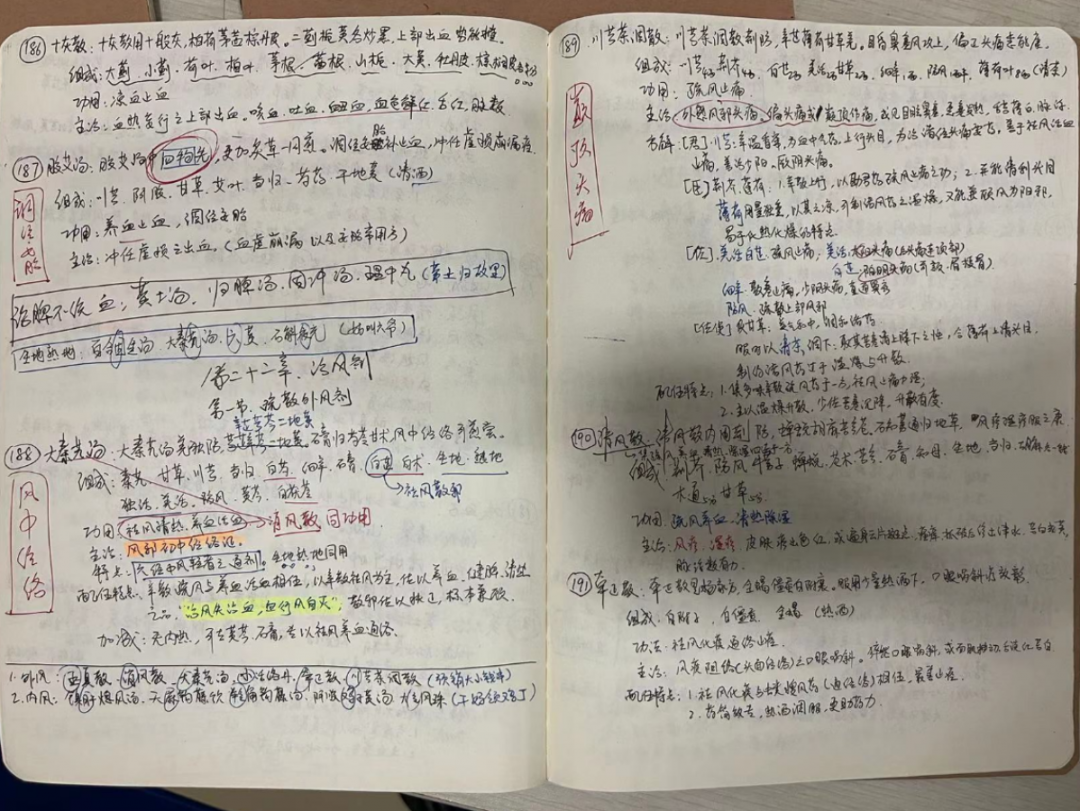 186 十灰散：十灰散用十般灰，柏有茅茜棕丹皮。二蓟栀黄各炒黑，上部出血势能摧。
组成：大蓟、小蓟、荷叶、柏叶、茅根、茜根、山栀、大黄、牡丹皮、棕榈皮
功用：凉血止血
主治：血热妄行之上部出血。咳血、吐血、衄血，血色鲜红，舌红，脉数
187 胶艾汤：胶艾汤中四物先，更加炙草一同煎。调经安胎补止血，冲任虚损崩漏痊。
调经安胎
组成：川芎、阿胶、甘草、艾叶、当归、芍药、干地黄（清酒）
功用：养血止血，调经安胎
主治：冲任虚损之出血。（血虚崩漏以及安胎常用方）
治脾不统血：黄土汤、归脾汤、固冲汤、理中丸（黄土归故里）
生地熟地：百合固金汤、大秦艽汤、
第二十二章、治风剂
第一节、疏散外风剂
188 大秦艽汤：大秦艽汤羌独防，
风中经络
组成：秦艽、甘草、川芎、当归、白芍、细辛、石膏、白芷、白术、生地、熟地
独活、羌活、防风、黄芩、白茯苓
→祛风散邪
功用：祛风清热，养血活血 → 消风散同功用
主治：风邪初中经络证。
特点：六经中风轻者之通剂。生地熟地同用
配伍特点：辛散疏风与养血活血相伍，以辛散祛风为主，佐以养血、健脾、清热
"治风先治血，血行风自灭"；
加减：无内热，可去黄芩、石膏，专以祛风养血通络。
1. 外风：消风散、大秦艽汤、小活络丹、牵正散、川芎茶调散
2. 内风：镇肝熄风汤、天麻钩藤饮、羚角钩藤汤、阿胶鸡子黄汤、大定风珠
189 川芎茶调散：川芎茶调散荆防，辛芷薄荷甘草羌。目昏鼻塞风攻上，偏正头痛悉能康。
散顶头痛
组成：川芎 荆芥 白芷 羌活 甘草 细辛 防风 薄荷叶（清茶）
功用：疏风止痛
主治：外感风邪头痛。偏头痛或巅顶作痛，或见目眩鼻塞，恶寒发热，舌苔薄白，脉浮。
方解：[君]川芎：辛温香窜，为血中气药，上行头目，为治诸经头痛要药，善于祛风活血
止痛，善治少阳、厥阴头痛。
[臣]荆芥、薄荷：1. 辛散上行，以助君药疏风止痛之功；2. 并能清利头目
薄荷用量独重，以其之凉，可制诸风药之温燥，又能兼顾风为阳邪，
易于化热化燥的特点。
[佐]羌活、白芷：疏风止痛；羌活：太阳头痛（后头痛连项部）
白芷：阳明头痛（前额、眉棱骨）
细辛：散寒止痛，少阴头痛，宣通鼻窍
防风：疏散上部风邪
[佐使]炙甘草：益气和中，调和诸药
服时以清茶调下：取其苦寒清上降下之性，合薄荷上清头目，
制约诸风药过于温燥与升散。
配伍特点：1. 集众多辛散疏风药于一方，祛风止痛力强；
2. 主以温燥升散，少佐苦寒沉降，升散有度。
190 消风散：消风散内用荆防，蝉蜕胡麻苦参苍。石知蒡通归地草，风疹湿疹服之康。
组成：荆芥、防风、牛蒡子、蝉蜕、苍术、苦参、石膏、知母、生地、当归、
木通 甘草
功用：疏风养血，清热除湿
主治：风疹、湿疹。皮肤疹出色红，或遍身云片斑点，瘙痒，抓破后渗出津水，苔白或黄，
脉浮数有力。
191 牵正散：牵正散是杨家方，全蝎僵蚕白附襄。服用少量热酒下，口眼㖞斜疗效彰。
组成：白附子，白僵蚕，全蝎（热酒）
功效：祛风化痰，通络止痉。
主治：风痰阻络（头面经络）之口眼㖞斜。
配伍特点：1. 祛风化痰与
2. 药简效专，热酒调服，更助药力。